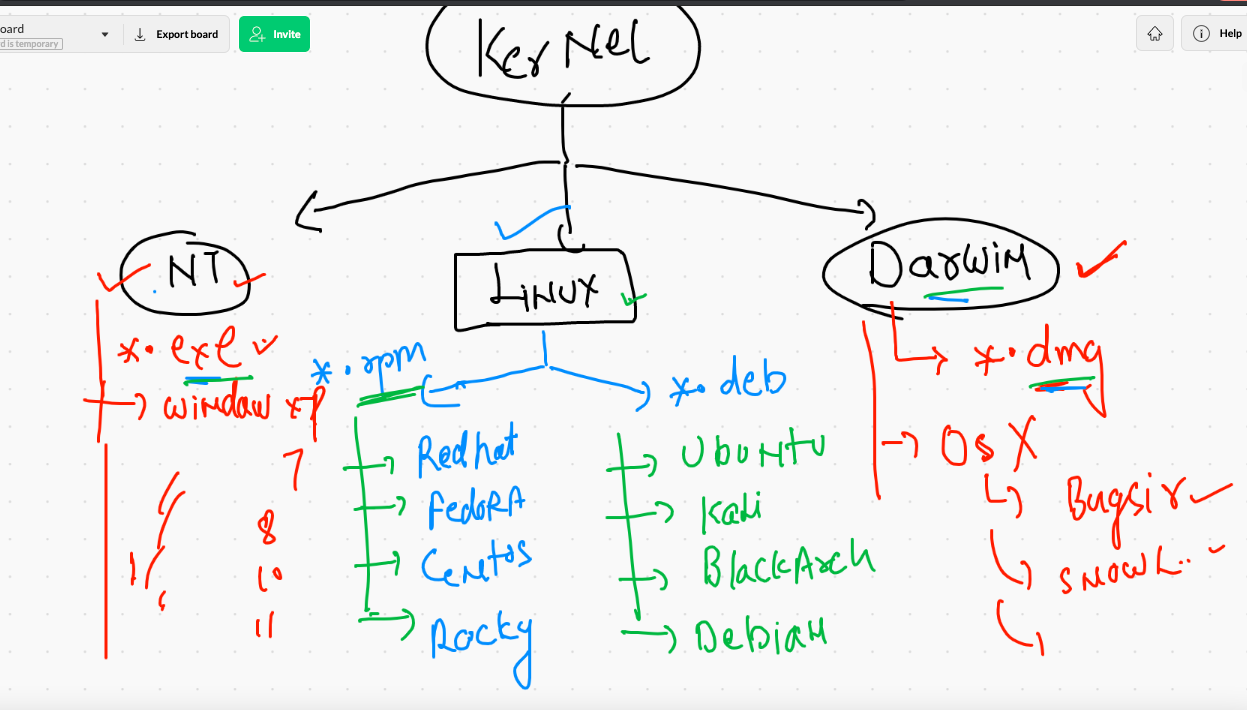 oard
d is temporary
Export board
Invite
Help
KerNel
NT
LiNUX
DarWiN
*.exe
window xp
7
8
10
11
*.rpm
Redhat
FedoRA
Centos
Rocky
*.deb
UbuNtu
Kali
BlackArch
DebiaN
*.dmg
Os X
Bugsir
SNowL..